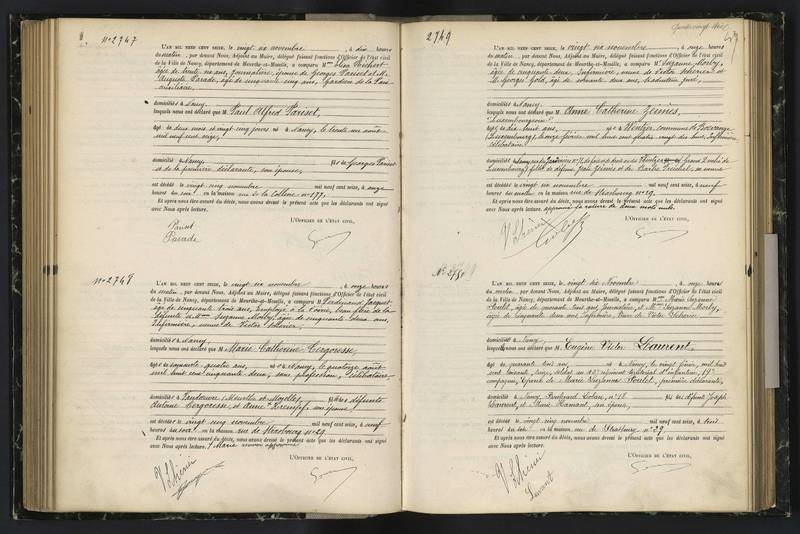 N° 2747
L'AN MIL NEUF CENT SEIZE, le vingt un novembre, à dix heures
du matin, par devant Nous, Adjoint au Maire, délégué faisant fonctions d'Officier de l'état civil
de la Ville de Nancy, département de Meurthe-et-Moselle, a comparu M
âgée de trente un ans, journalière, épouse de Georges Pariset et M.
Auguste Parade, âgé de cinquante cinq ans, Gardien de la Paix
auxiliaire,
domiciliés à Nancy,
lesquels nous ont déclaré que M Paul Alfred Pariset,
âgé de deux mois et vingt cinq jours né à Nancy, le trente un août
mil neuf cent seize,
domicilié à Nancy, fils de Georges Pariset
et de la première déclarante, son épouse,
est décédé le vingt novembre mil neuf cent seize, à onze
heures du soir en la maison rue de la Colline n° 177,
Et après nous être assuré du décès, nous avons dressé le présent acte que les déclarants ont signé
avec Nous après lecture.
L'OFFICIER DE L'ÉTAT CIVIL,
Pariset
Parade
N° 2748
L'AN MIL NEUF CENT SEIZE, le vingt un novembre, à onze heures
du matin, par devant Nous, Adjoint au Maire, délégué faisant fonctions d'Officier de l'état civil
de la Ville de Nancy, département de Meurthe-et-Moselle, a comparu M Ferdinand Jacquot
âgé de cinquante trois ans, employé à la Voirie, beau frère de la
défunte et Mme Suzanne Morby, âgée de cinquante deux ans,
infirmière, veuve de Victor
domiciliés à Nancy,
lesquels nous ont déclaré que M Marie Catherine Cergoresse,
âgée de soixante quatre ans, née à Nancy, le quatorze août
mil huit cent cinquante deux, sans profession, célibataire,
domiciliée à Vandoeuvre, Meurthe et Moselle, fille des défunts
Antoine Cergoresse et Anne son épouse,
est décédée le vingt novembre mil neuf cent seize, à neuf
heures du soir en la maison rue de Strasbourg n° 29.
Et après nous être assuré du décès, nous avons dressé le présent acte que les déclarants ont signé
avec Nous après lecture.
L'OFFICIER DE L'ÉTAT CIVIL,
2749
L'AN MIL NEUF CENT SEIZE, le vingt un novembre, à onze heures
du matin, par devant Nous, Adjoint au Maire, délégué faisant fonctions d'Officier de l'état civil
de la Ville de Nancy, département de Meurthe-et-Moselle, a comparu M Suzanne Morby,
âgée de cinquante deux, Infirmière, veuve de Victor et
M. Georges Gold, âgé de soixante deux ans, traducteur juré,
domiciliés à Nancy,
lesquels nous ont déclaré que M Anne Catherine Zeimes,
"Luxembourgeoise"
âgée de dix huit ans, née à
(Luxembourg), le onze février mil huit cent quatre vingt dix huit,
célibataire
Luxembourg) fille de défunt Jean Zeimes et de Barbe sa veuve
est décédée le vingt un novembre mil neuf cent seize, à neuf
heures du matin en la maison rue de Strasbourg n° 29.
Et après nous être assuré du décès, nous avons dressé le présent acte que les déclarants ont signé
avec Nous après lecture. approuvé la rature de deux mots nuls.
L'OFFICIER DE L'ÉTAT CIVIL,
N° 2750
L'AN MIL NEUF CENT SEIZE, le vingt dix Novembre, à onze heures
du matin, par devant Nous, Adjoint au Maire, délégué faisant fonctions d'Officier de l'état civil
de la Ville de Nancy, département de Meurthe-et-Moselle, a comparu Mme Marie Suzanne
Poulet, âgée de quarante trois ans, journalière, et Mme Suzanne Morby,
âgée de cinquante deux ans, Infirmière, Veuve de Victor
domiciliés à Nancy,
lesquels nous ont déclaré que M Eugène Victor Laurent,
âgé de quarante trois ans, né à Nancy, le vingt février, mil huit
cent soixante treize, soldat au d'infanterie, 19e
compagnie, Epoux de Marie Suzanne Poulet, première déclarante,
domicilié à Nancy, Boulevard Lobau, n° 18 fils des défunts Joseph
Laurent, et Marie son épouse,
est décédé le vingt novembre mil neuf cent seize, à trois
heures du soir en la maison rue de Strasbourg n° 29
Et après nous être assuré du décès, nous avons dressé le présent acte que les déclarants ont signé
avec Nous après lecture.
L'OFFICIER DE L'ÉTAT CIVIL,